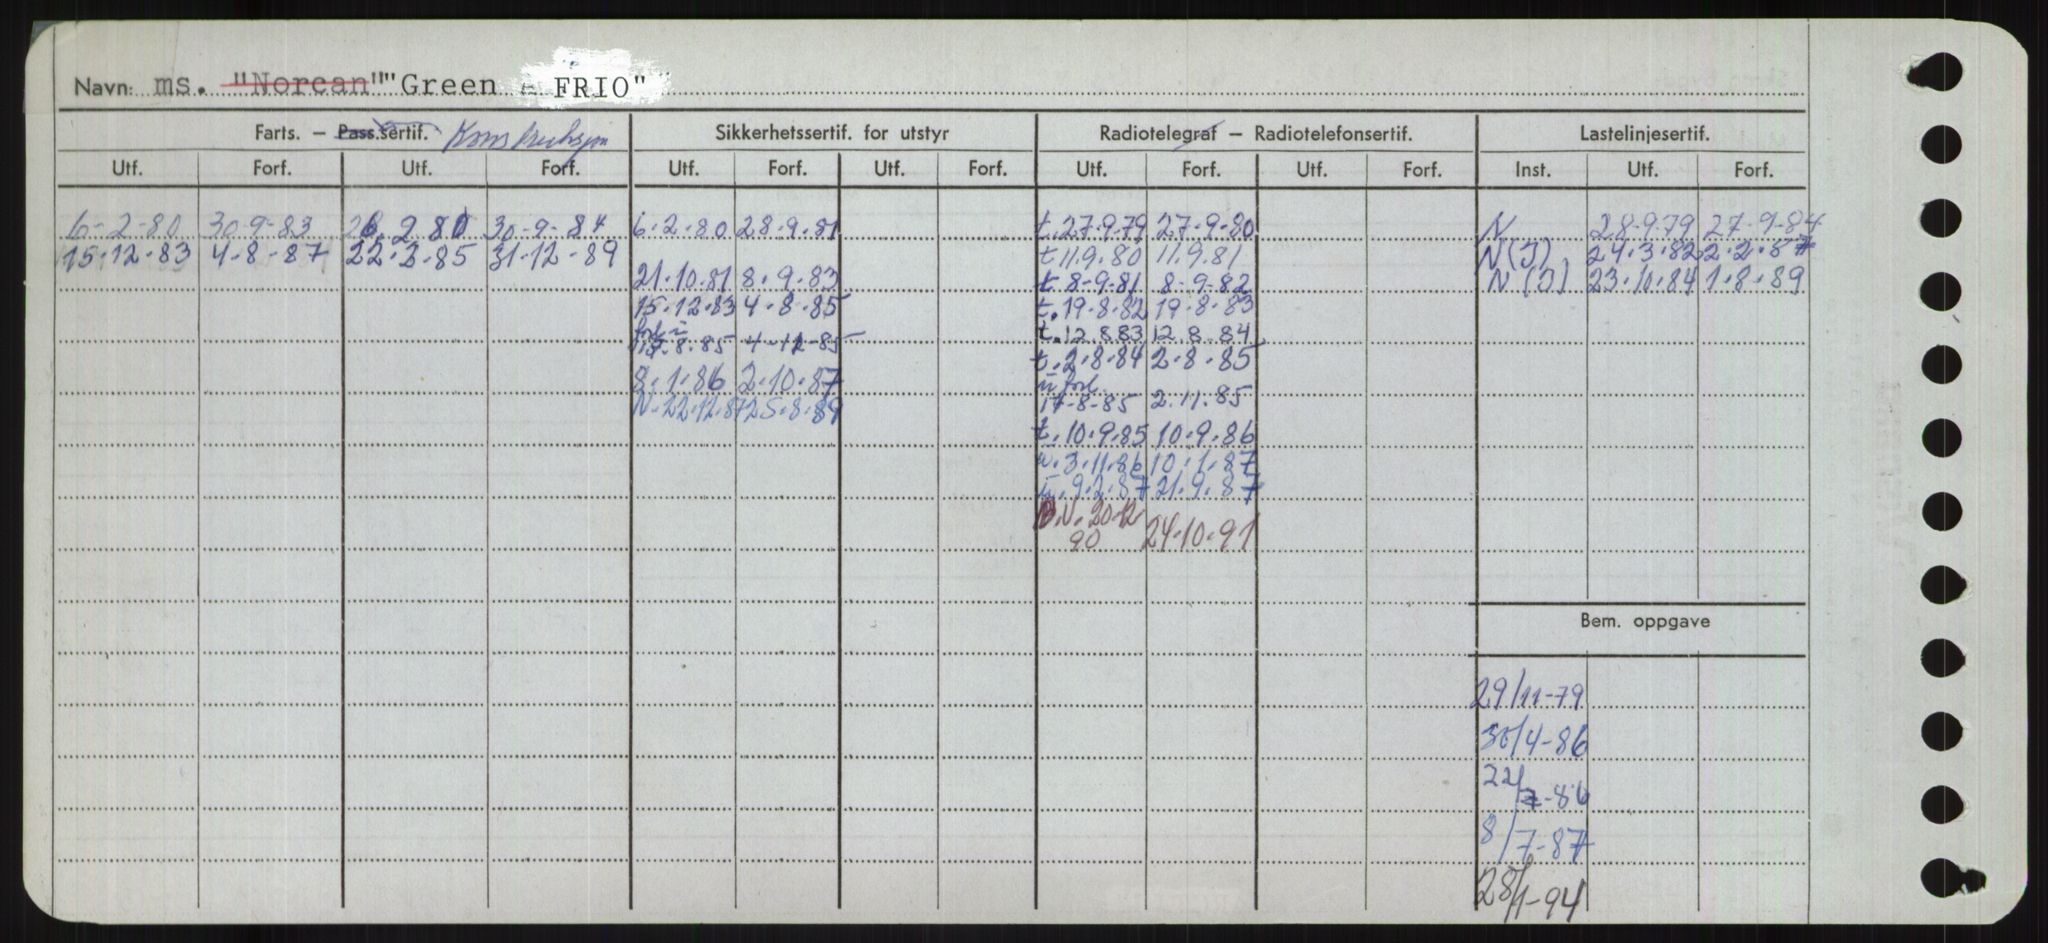 Navn: ms. "Norcan" "Green FRIO"
Farts. – Pass.sertif. Konstruksjon Sikkerhetssertif. for utstyr Radiotelegraf – Radiotelefonsertif. Lastelinjesertif.
Utf. Forf. Utf. Forf. Utf. Forf. Utf. Forf. Utf. Forf. Utf. Forf. Inst. Utf. Forf.
6-2-80 30-9-83 30-9-84 6.2.80 28.9.81 t.27.9.79 27.9.80 N 28.9.79 27.9.84
15.12.83 4.8-87 22.2.85 31.12.89 t 11.9.80 11.9.81 N(J) 24.3.82
21.10.81 8.9.83 t 8-9.81 8-9-82 N(J) 23.11.84 1.8.89
15.12.83 4.8.85 t.19.8.82 19.8.83
forl. t.12.8.83 12.8.84
8.85 85 t.2.8.84 2.8.85
8.1.86 2.10.87 forl.
17-8-85 2.11.85
N.22.12.87 25.8.89
t.10.9.85 10.9.86
3.11.86 10.1.87
9.2.87 21.9.87
20.12. 24.10.91
90
Bem. oppgave
29/11-79
30/4-86
22/7-86
8/7-87
28/1-94